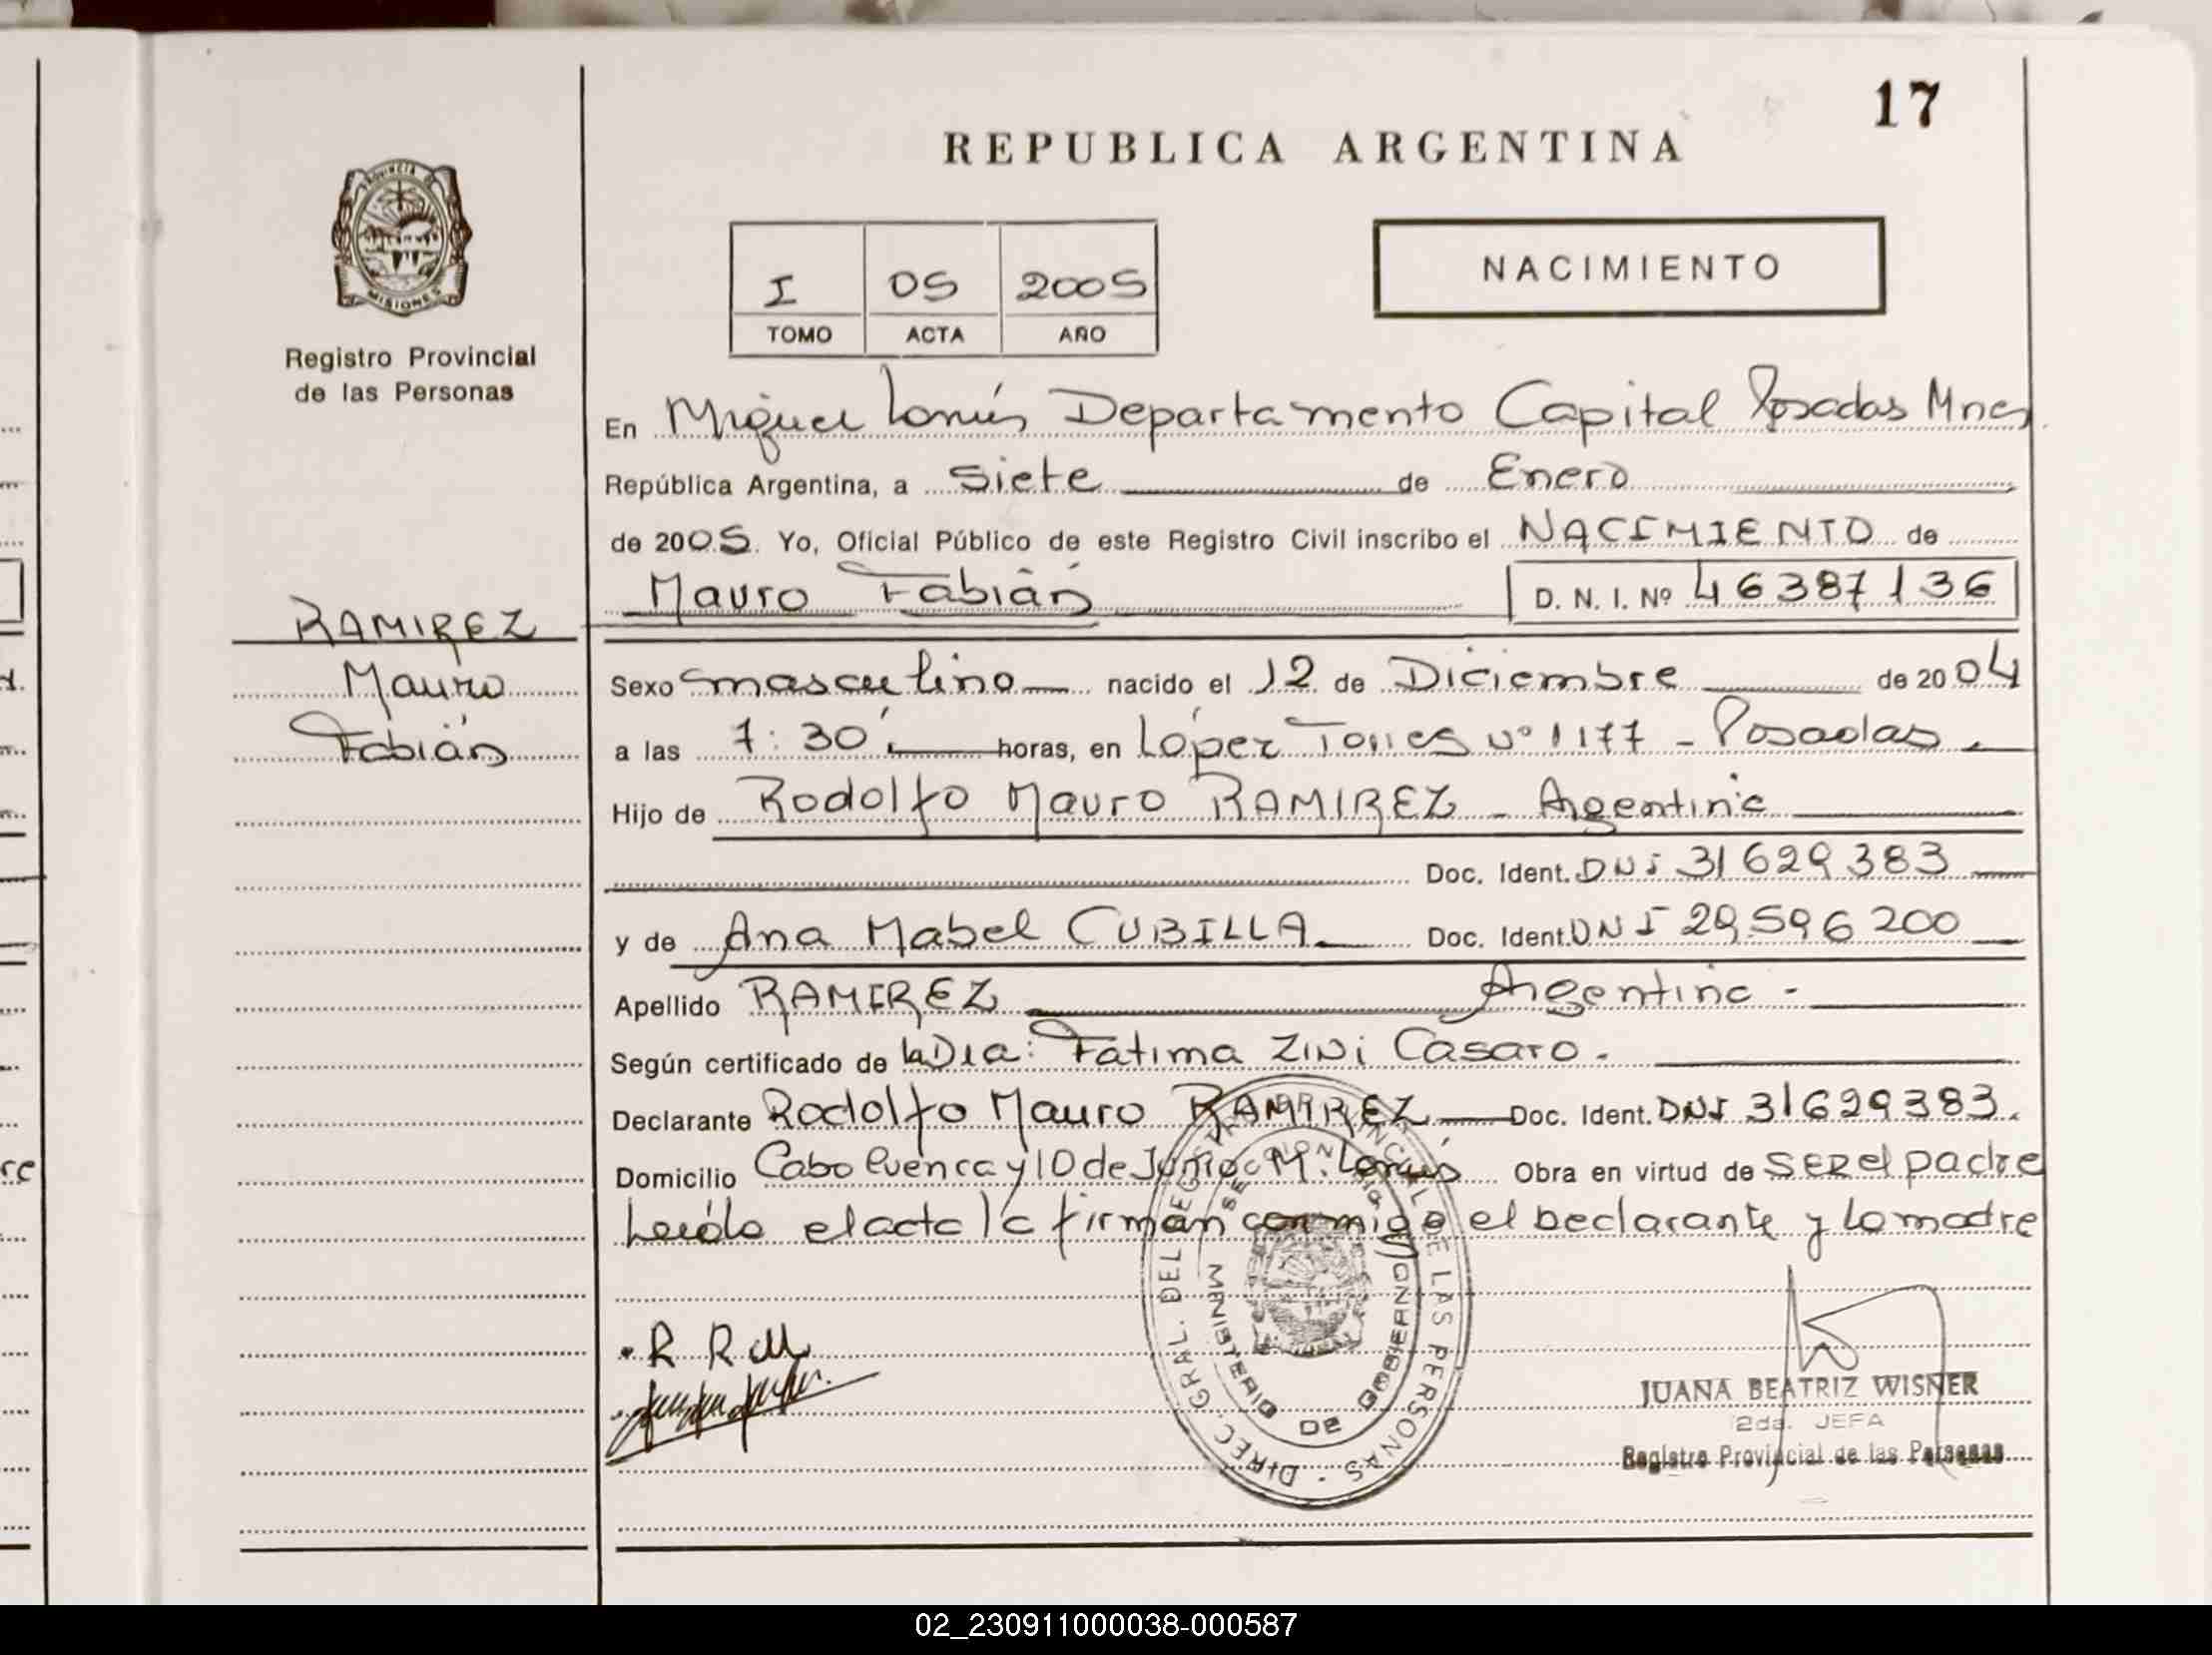 17
REPUBLICA ARGENTINA
PROVINCIA DE
MISIONES
Registro Provincial
de las Personas
I 05 2005
TOMO ACTA AÑO
NACIMIENTO
En Miguel Lanús Departamento Capital Posadas Mnes
República Argentina, a siete de Enero
de 2005. Yo, Oficial Público de este Registro Civil inscribo el NACIMIENTO de
Mauro Fabián D. N. I. Nº 46387136
RAMIREZ
Mauro
Fabián
Sexo masculino nacido el 12 de Diciembre de 2004
a las 7:30 horas, en López Torres nº 1177 - Posadas.
Hijo de Rodolfo Mauro RAMIREZ - Argentina
Doc. Ident. DNI 31629383
y de Ana Mabel CUBILLA Doc. Ident. DNI 29.596200
Apellido RAMIREZ Argentina -
Según certificado de la Dra: Fatima ZINI Casaro.
Declarante Rodolfo Mauro RAMIREZ Doc. Ident. DNI 31629383.
Domicilio Cabo Cuenca y 10 de Junio M. Lanús Obra en virtud de SER el padre
Leída el acta la firman conmigo el Declarante y la madre
R R M
DIREC. GRAL. DEL REGISTRO PROVINCIAL DE LAS PERSONAS
MINISTERIO DE GOBIERNO
JUANA BEATRIZ WISNER
2da. JEFA
Registro Provincial de las Personas
02_230911000038-000587